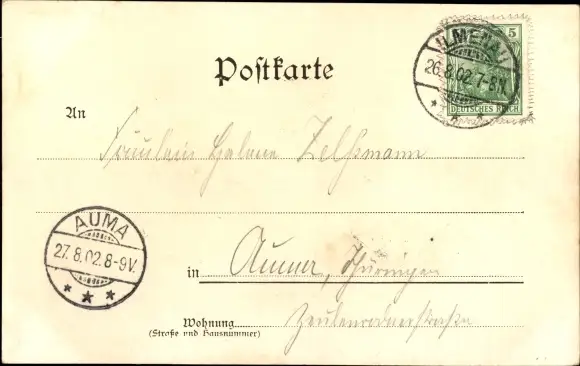 ILMENAU
26.8.02. 7-8N.
5
DEUTSCHES REICH
Postkarte
An
Fräulein Helene
AUMA
27.8.02. 8-9V.
in Auma, Thüringen
Wohnung Zeulenrodnerstraße
(Straße und Hausnummer)